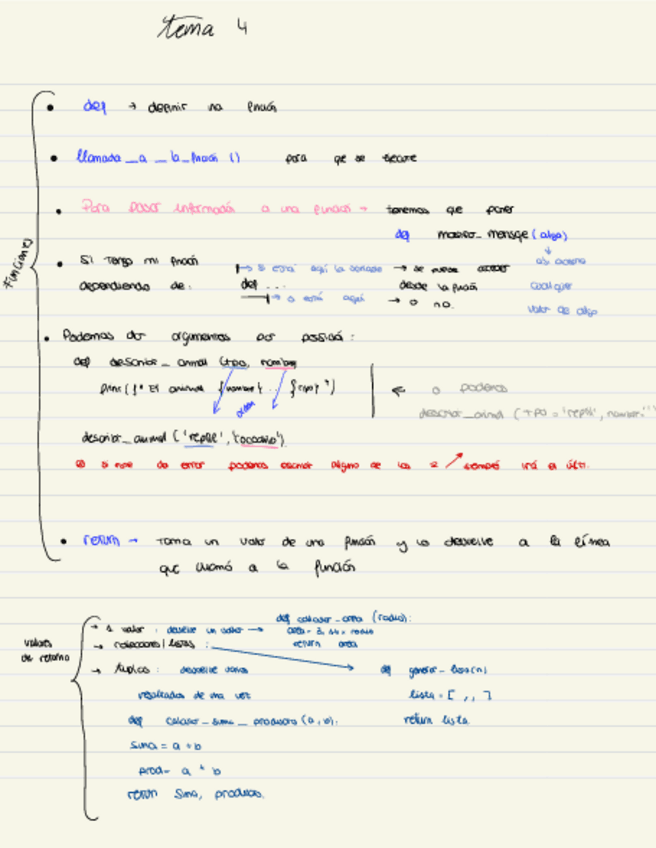 tema 4
Funciones
• def → definir una función
• llamada_a_la_función () para que se ejecute
• Para pasar información a una función → tenemos que poner
def mostrar_mensaje (algo)
• Si tengo mi función
dependiendo de:
→ si está aquí la variable → se puede acceder
def ... desde la función
→ o está aquí → o no.
cualquier
valor de algo
• Podemos dar argumentos por posición:
def describir_animal (tipo, nombre
print (f" El animal {nombre} ... {tipo} ")
← o podemos
describir_animal (tipo = 'reptil', nombre=
describir_animal ('reptil', 'cocodrilo')
si no da error podemos
• return → Toma un valor de una función y lo devuelve a la línea
que llamó a la función
valores
de retorno
→ 1 valor : devuelve un valor →
def calcular_area (radio):
return area
→ colecciones / listas :
→ tuplas : devuelve varios
resultados de una vez
def calcular_suma_producto (a, b).
suma = a + b
prod = a * b
return suma, producto.
lista = [ , , ]
return lista